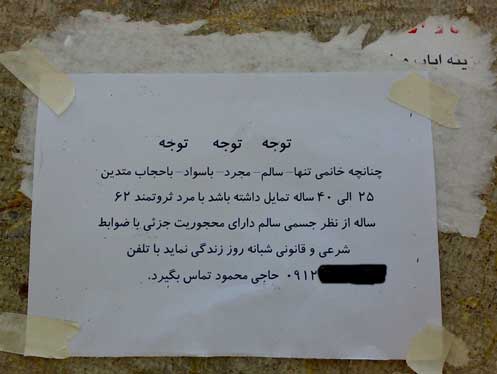 توجه توجه توجه
چنانچه خانمی تنها – سالم – مجرد – باسواد – باحجاب متدین
۲۵ الی ۴۰ ساله تمایل داشته باشد با مرد ثروتمند ۶۲
ساله از نظر جسمی سالم دارای محجوریت جزئی با ضوابط
شرعی و قانونی شبانه روز زندگی نماید با تلفن
۰۹۱۲ حاجی محمود تماس بگیرد.